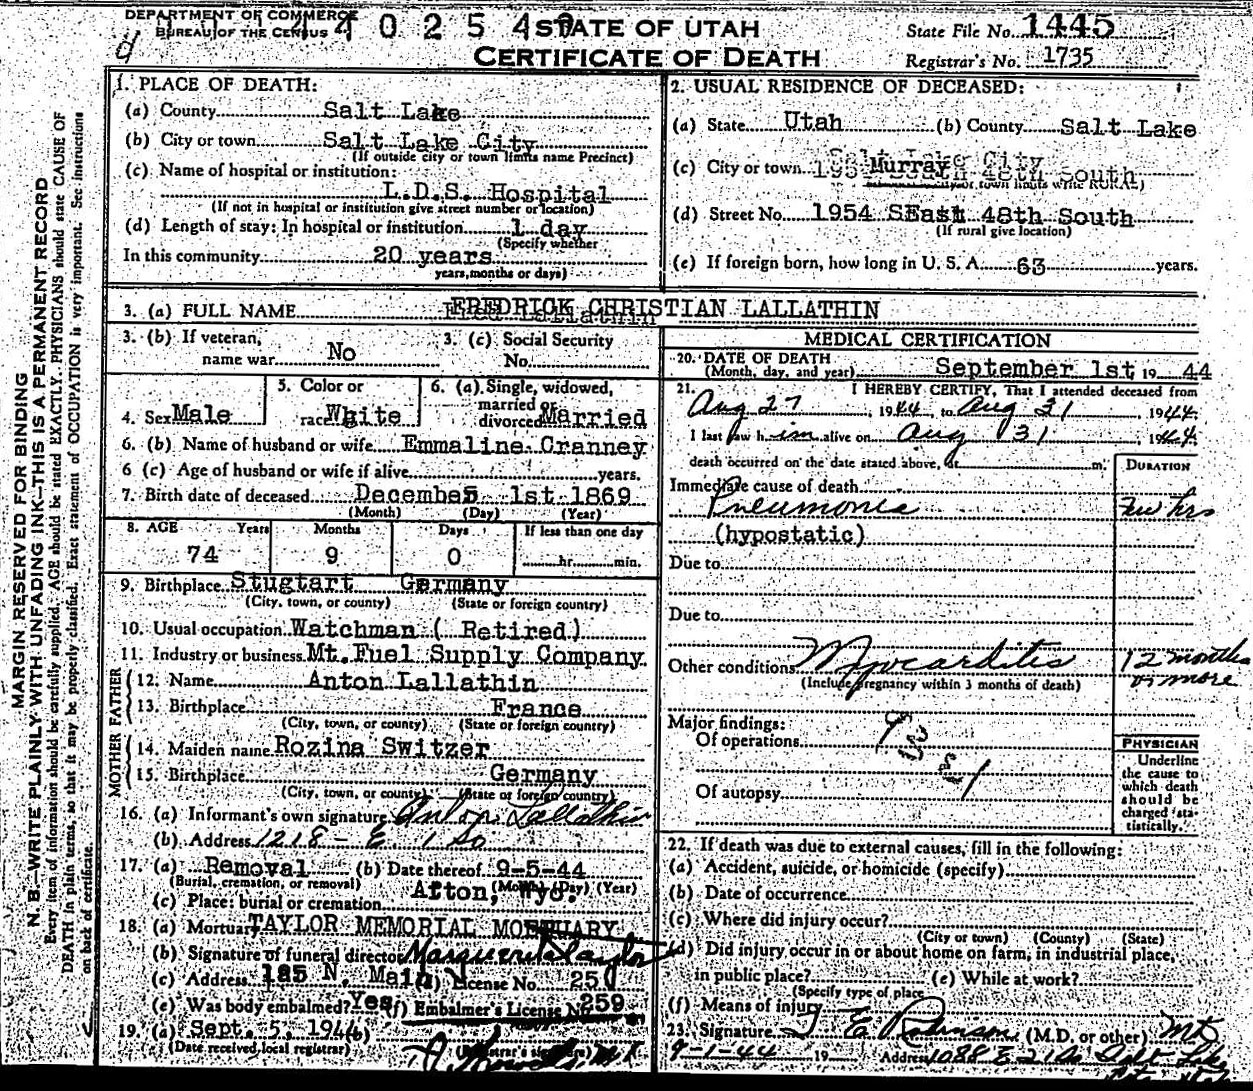 DEPARTMENT OF COMMERCE
BUREAU OF THE CENSUS
4 0 2 5 4
STATE OF UTAH
CERTIFICATE OF DEATH
State File No. 1445
Registrar's No. 1735
d
MARGIN RESERVED FOR BINDING
N. B.—WRITE PLAINLY WITH UNFADING INK—THIS IS A PERMANENT RECORD
Every item of information should be carefully supplied. AGE should be stated EXACTLY. PHYSICIANS should state CAUSE OF
DEATH in plain terms, so that it may be properly classified. Exact statement of OCCUPATION is very important. See instructions
on back of certificate.
1. PLACE OF DEATH:
(a) County Salt Lake
(b) City or town Salt Lake City
(If outside city or town limits name Precinct)
(c) Name of hospital or institution:
L.D.S. Hospital
(If not in hospital or institution give street number or location)
(d) Length of stay: In hospital or institution 1 day
(Specify whether
In this community 20 years
years, months or days)
2. USUAL RESIDENCE OF DECEASED:
(a) State Utah (b) County Salt Lake
Salt Lake City
(c) City or town 1954 South 48th South Murray
city or town limits write RURAL)
(d) Street No. 1954 East 48th South
(If rural give location)
(e) If foreign born, how long in U. S. A. 63 years.
3. (a) FULL NAME FREDRICK CHRISTIAN LALLATHIN
Fred Lallathin
3. (b) If veteran,
name war No
3. (c) Social Security
No.
4. Sex Male
5. Color or
race White
6. (a) Single, widowed,
married or
divorced Married
6. (b) Name of husband or wife Emmaline Cranney
6 (c) Age of husband or wife if alive years.
7. Birth date of deceased December 1st 1869
(Month) (Day) (Year)
8. AGE Years Months Days If less than one day
74 9 0 hr. min.
9. Birthplace Stugtart Germany
(City, town, or county) (State or foreign country)
10. Usual occupation Watchman ( Retired)
11. Industry or business Mt.Fuel Supply Company
FATHER
12. Name Anton Lallathin
13. Birthplace France
(City, town, or county) (State or foreign country)
MOTHER
14. Maiden name Rozina Switzer
15. Birthplace Germany
(City, town, or county) (State or foreign country)
16. (a) Informant's own signature Anton Lallathin
(b) Address 1218 - E. 1 So
17. (a) Removal (b) Date thereof 9-5-44
(Burial, cremation, or removal) (Month) (Day) (Year)
(c) Place: burial or cremation Afton, Wyo.
18. (a) Mortuary TAYLOR MEMORIAL MORTUARY
(b) Signature of funeral director Marguerite Taylor
(c) Address 125 N. Main (d) License No. 250
(e) Was body embalmed? Yes (f) Embalmer's License No. 259
19. (a) Sept. 5, 1944 (b)
(Date received local registrar) (Registrar's signature)
MEDICAL CERTIFICATION
20. DATE OF DEATH
(Month, day, and year) September 1st, 19 44
21. I HEREBY CERTIFY, That I attended deceased from
Aug 27, 1944, to Aug 31 1944.
I last saw him alive on Aug 31, 1944.
death occurred on the date stated above, at m.
DURATION
Immediate cause of death
Pneumonia Few hrs
(hypostatic)
Due to
Due to
Other conditions Myocarditis 12 months
or more
(Include pregnancy within 3 months of death)
Major findings:
Of operations
Of autopsy
PHYSICIAN
Underline
the cause to
which death
should be
charged sta-
tistically.
22. If death was due to external causes, fill in the following:
(a) Accident, suicide, or homicide (specify)
(b) Date of occurrence
(c) Where did injury occur?
(City or town) (County) (State)
(d) Did injury occur in or about home on farm, in industrial place,
in public place? (e) While at work?
(Specify type of place
(f) Means of injury
23. Signature J E Robinson (M.D. or other) MD
9-1-44 19 Address 1088 E 21 So Salt Lake